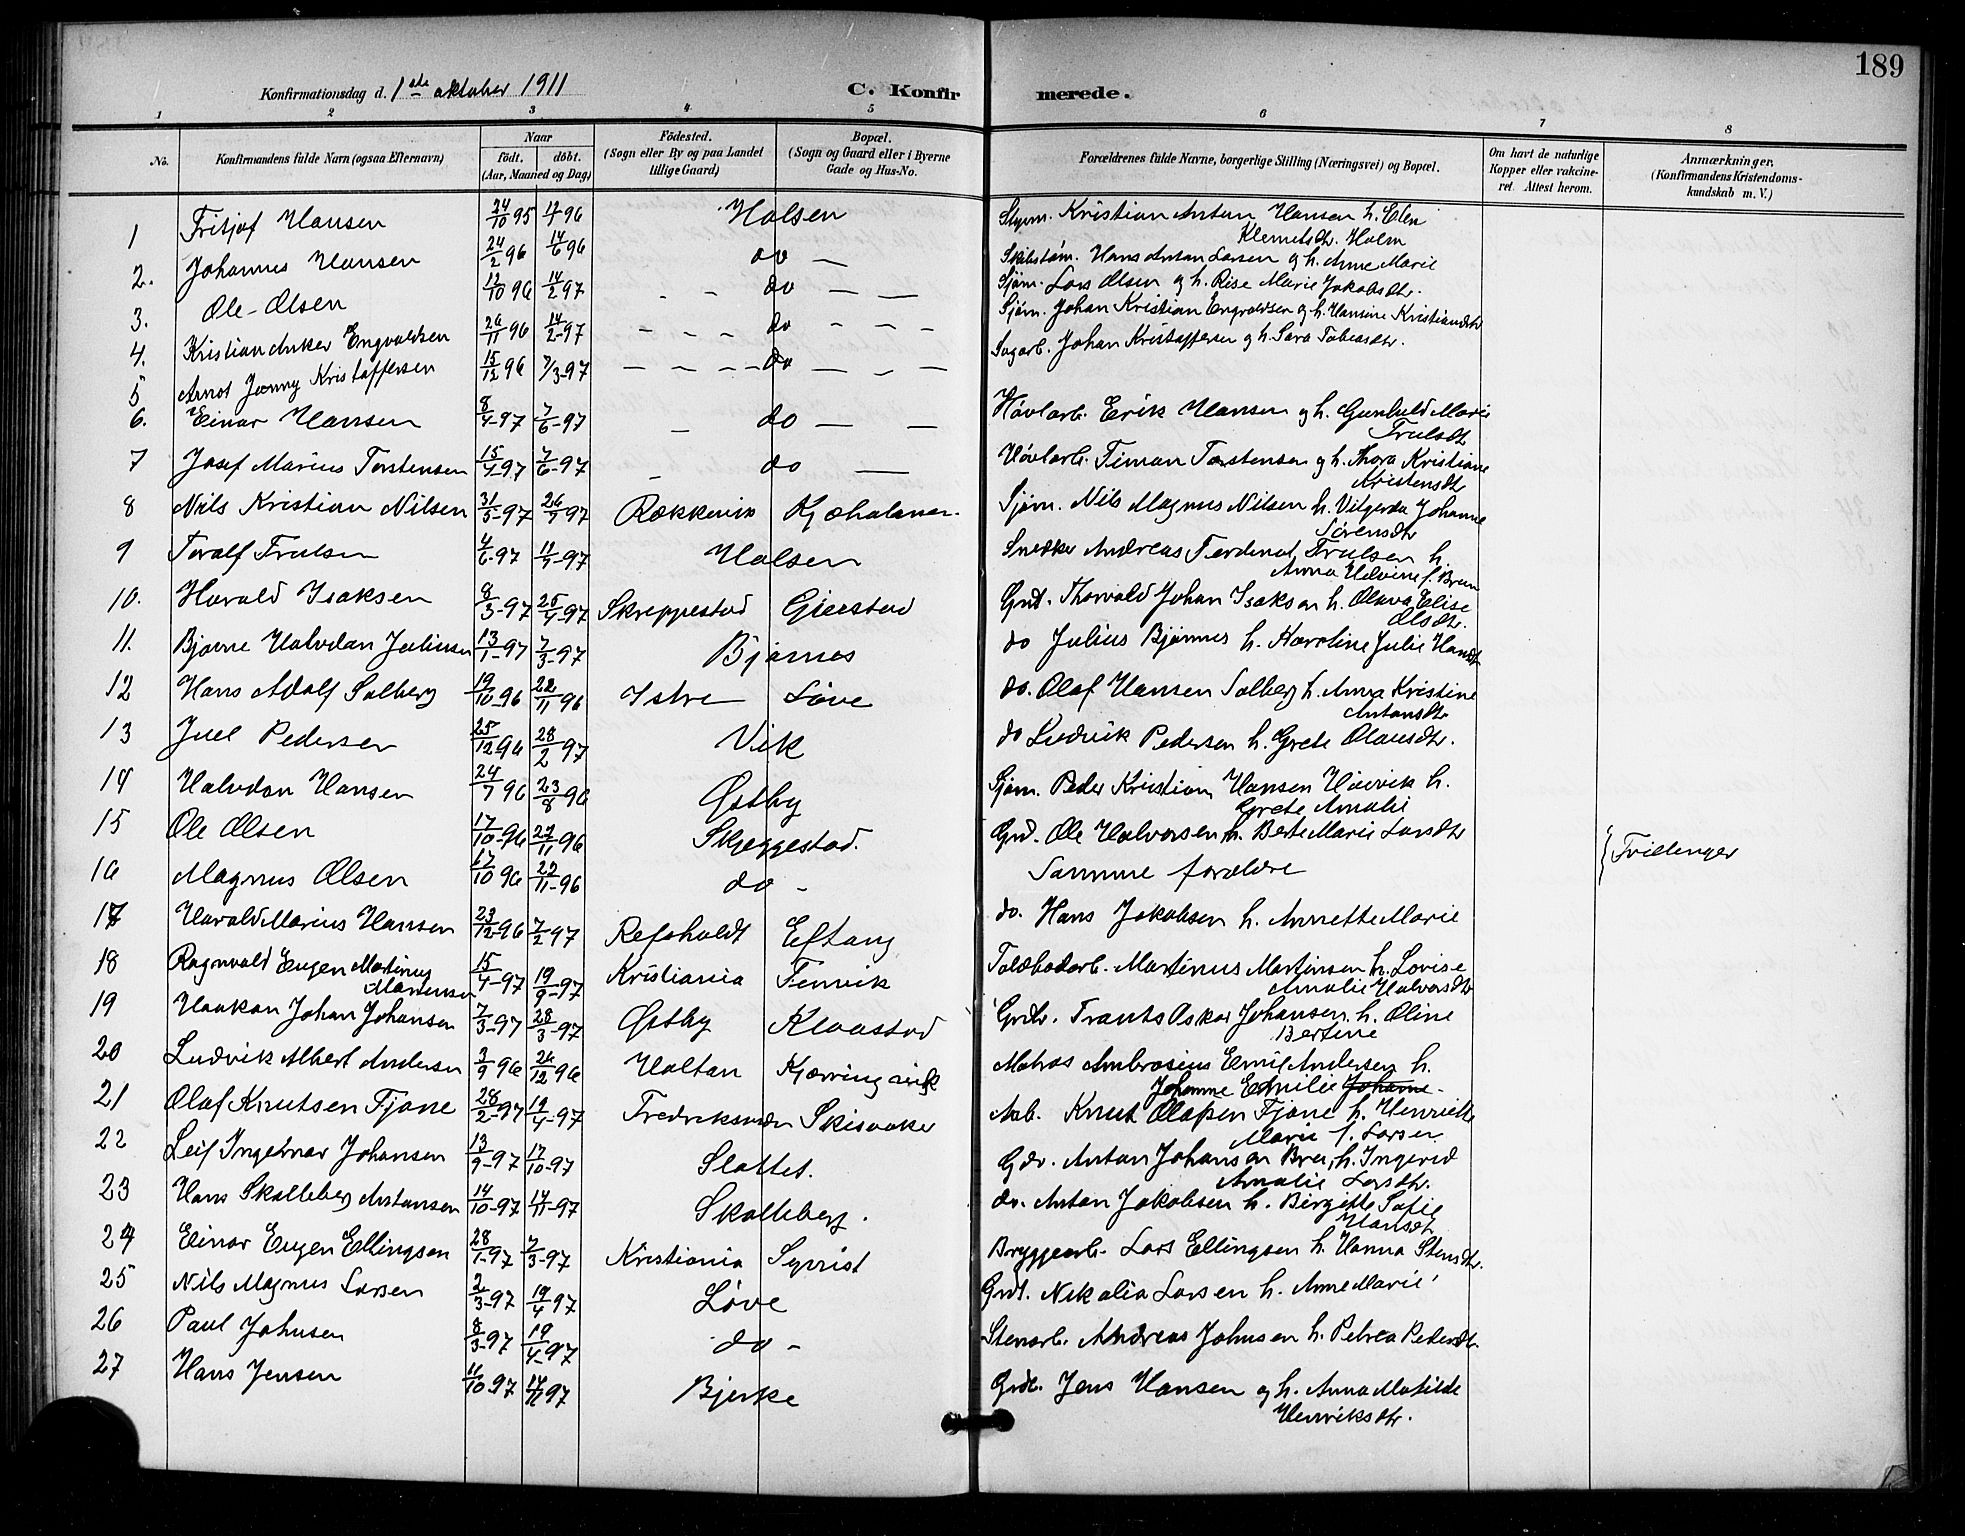 189
Konfirmationsdag d. 1ste oktober 1911
C. Konfirmerede.
1 2 3 4 5 6 7 8
No.
Konfirmandens fulde Navn (ogsaa Efternavn)
Naar
født. døbt.
(Aar, Maaned og Dag)
Fødested.
(Sogn eller By og paa Landet
tillige Gaard)
Bopæl.
(Sogn og Gaard eller i Byerne
Gade og Hus-No.
Forældrenes fulde Navne, borgerlige Stilling (Næringsvei) og Bopæl.
Om havt de naturlige
Kopper eller vakcine-
ret. Attest herom.
Anmærkninger.
(Konfirmandens Kristendoms-
kundskab m. V.)
1 Fritjof Hansen 24/10 95 96 Halsen Styrm. Kristian Anton Hansen h. Elen
Klemetsdtr. Holm
2. Johannes Hansen 24/2 96 14/6 96 do — Hans Anton Larsen og h. Anne Marie
3. Ole Olsen 12/10 96 14/2 97 do — Sjøm. Lars Olsen og h. Rise Marie Jakobsdtr.
4. Kristian Anker Engvaldsen 26/11 96 14/2-97 do Sjøm. Johan Kristian Engvaldsen og h. Hansine Kristiansdtr
5 Arnot Jonny Kristoffersen 15/12 96 7/3-97 do Sagarb. Johan Kristoffersen og h. Sara Tobiasdtr.
6. Einar Hansen 8/4-97 7/6-97 do Høvlarb. Erik Hansen og h. Gunhild Marie
Trulsdtr
7 Josef Marius Torstensen 15/4-97 7/6-97 do Høvlarb. Timan Torstensen og h. Thora Kristiane
Kristensdtr
8 Nils Kristian Nilsen 31/5-97 26/7 97 Rækkevik Kjøhalaner. Sjøm. Nils Magnus Nilsen h. Vilgerda Johanne
Sørensdtr
9 Toralf Trulsen 4/6-97 11/7-97 Halsen Snedker Andreas Ferdinal Trulsen h.
Anna Helvine f. Brun
10. Harald Isaksen 8/3-97 25/4-97 Skreppestad Gjerstad Grd. Thorvald Johan Isaksen h. Olava Elise
Olsdtr.
11. Bjarne Halvdan Juliusen 13/1-97 7/3-97 Bjønnes do Julius Bjønnes h. Karoline Julie Hansdtr
12 Hans Adolf Solberg 19/10-96 22/11 96 Istre Løve do. Olaf Hansen Solberg h. Anna Kristine
Antonsdtr
13 Juel Pedersen 25/12-96 28/2 97 Vik do Ludvik Pedersen h. Grete Olausdtr.
14 Halvdan Hansen 24/7 96 23/8 96 Østby Sjøm. Peder Kristian Hansen Høivik h.
Grete Amalie
15 Ole Olsen 17/10-96 22/11-96 Skjeggestad. Grd. Ole Halvorsen h. Berte Marie Larsdtr
16 Magnus Olsen 17/10 96 22/11-96 do - Samme forældre Tvillinger
17 Harald Marius Hansen 23/12-96 7/2 97 Refsholdt Eftang do. Hans Jakobsen h. Annette Marie
18 Ragnvald Eugen Martinus
Martinsen 15/4-97 19/9-97 Kristiania Tenvik Toldbodarb. Martinus Martinsen h. Lovise
Amalie Halvorsdtr
19 Haakon Johan Johansen 7/3-97 28/3-97 Østby Klaastad Grdbr. Frants Oskar Johansen h. Oline
Bertine
20 Ludvik Albert Andersen 3/9 96 26/12 96 Holtan Kjærringvik Matros Ambrosius Emil Andersen h.
Johanne Emilie Johanne-
21 Olaf Knutsen Fjone 28/2-97 19/4-97 Skisaaker Arb. Knut Olafsen Fjone h. Henriette
Marie f. Larsen
22 Leif Ingelmar Johansen 13/9-97 17/10-97 Slottet. Gdr. Anton Johansen Bree, h. Ingerid
Amalie Larsdtr.
23 Hans Skalleberg Antonsen 14/10-97 14/11-97 Skalleberg. do. Anton Jakobsen h. Birgitte Sofie
Hansdtr
24 Einar Eugen Ellingsen 28/1-97 7/3-97 Kristiania Syrrist Bryggearb. Lars Ellingsen h. Hanna Stensdtr.
25 Nils Magnus Larsen 2/3-97 19/4 97 Løve Grd. Nikolia Larsen h. Anne Marie
26 Paul Johnsen 8/3-97 19/4-97 do - Stenarb. Andreas Johnsen h. Petrea Pedersdtr.
27 Hans Jensen 11/10 97 97 Bjerke Grdb. Jens Hansen og h. Anna Matilde
Henriksdtr.